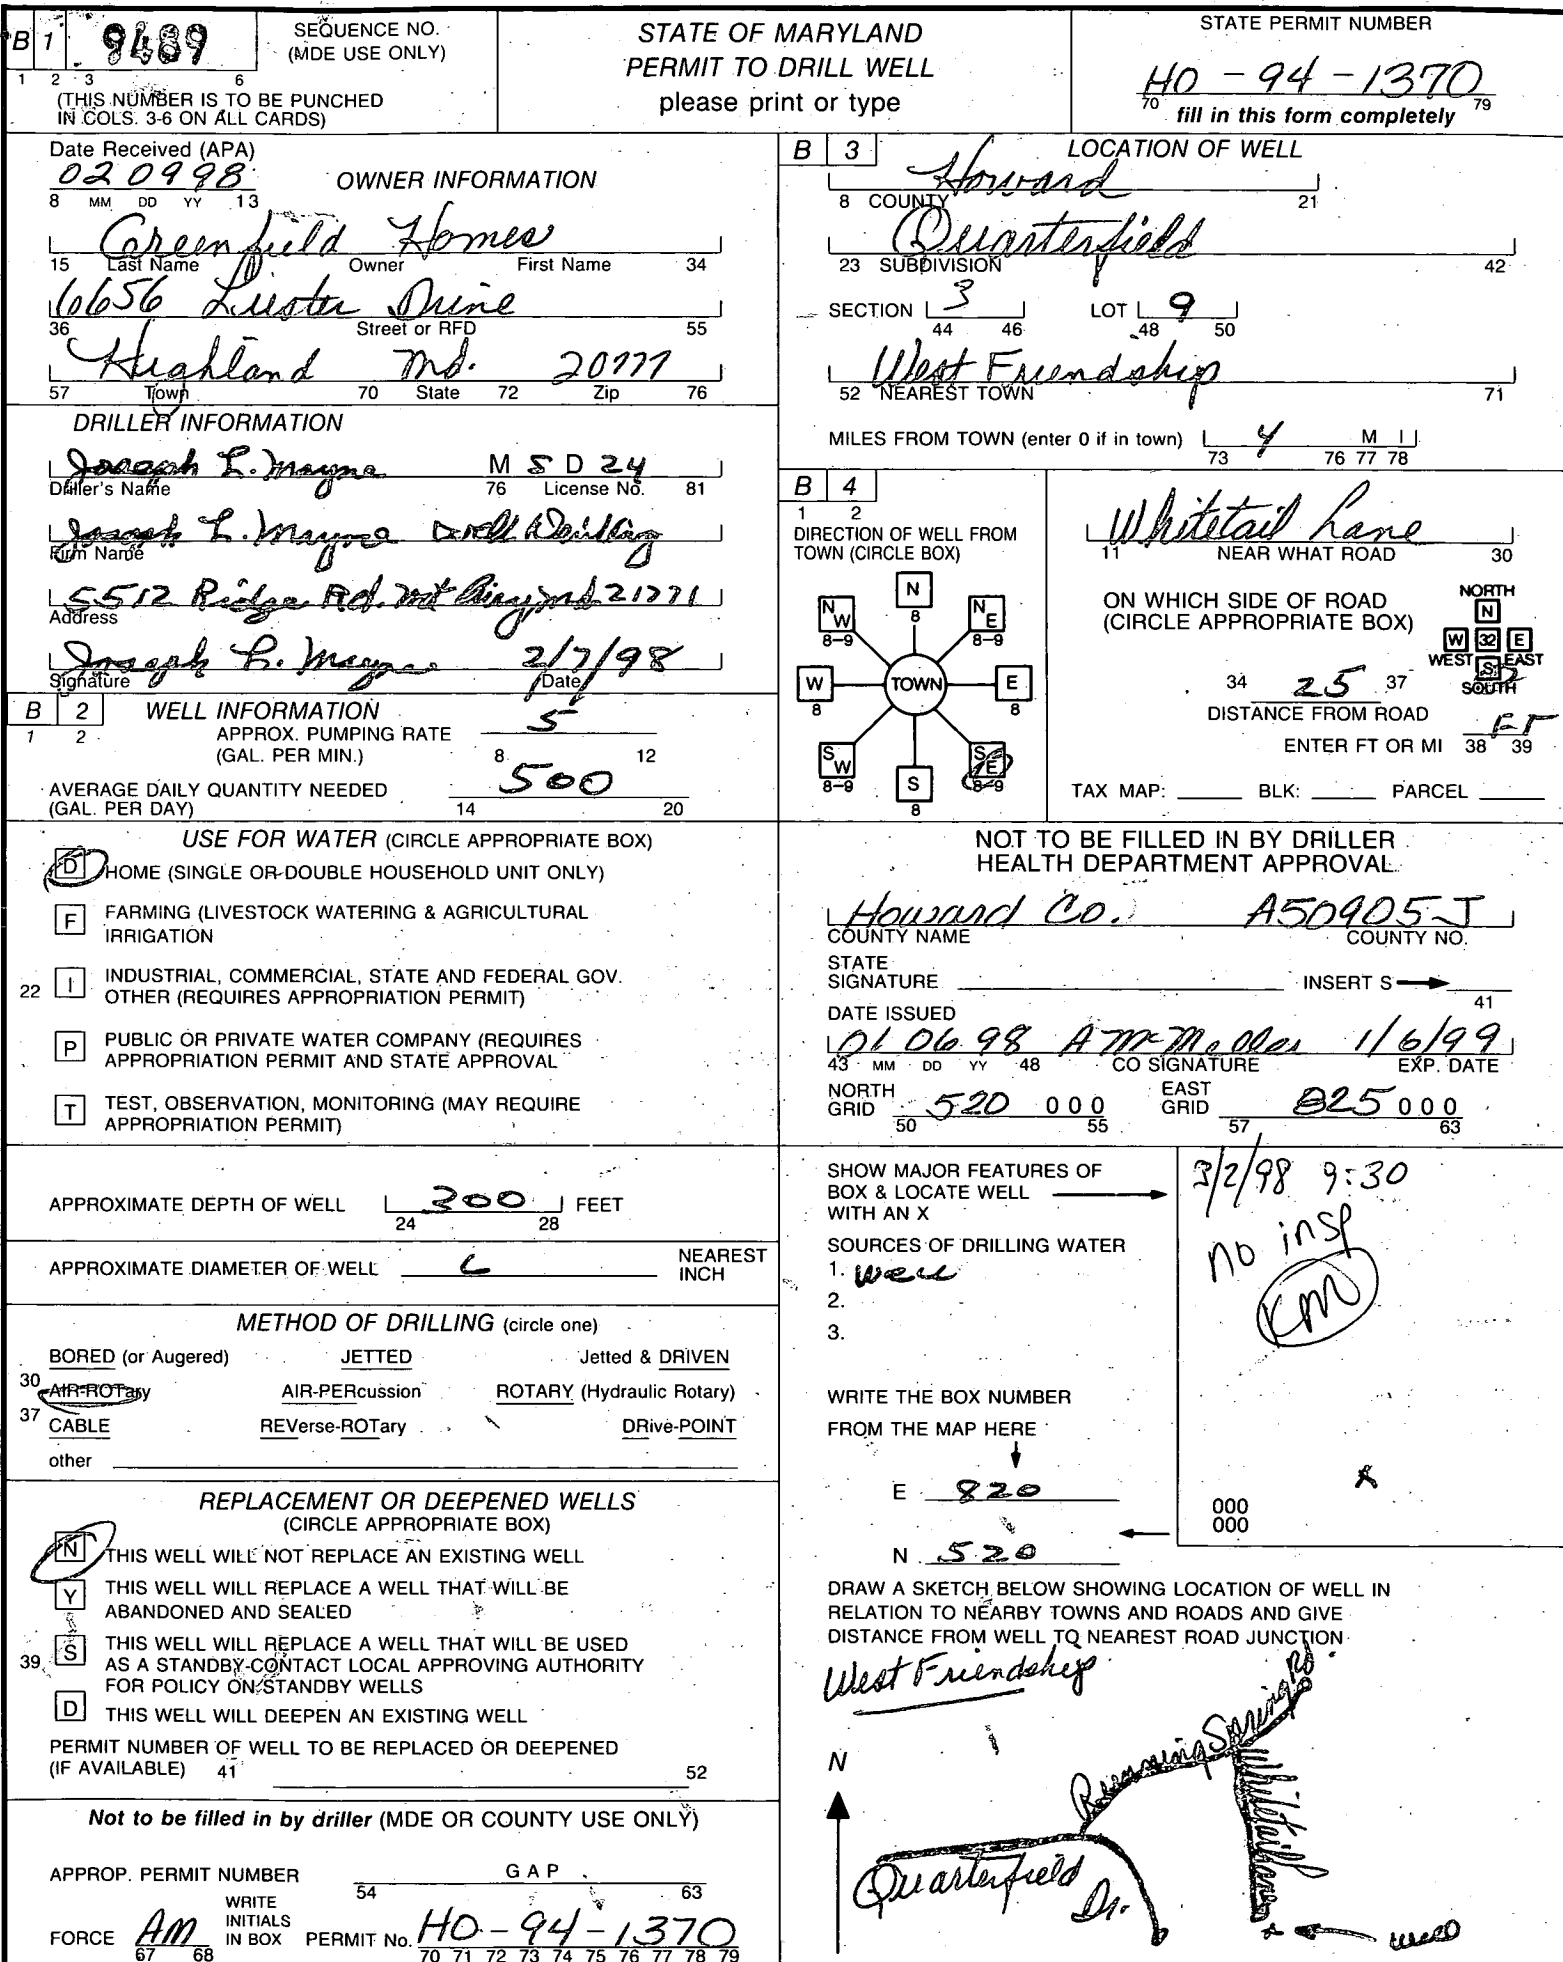 B 1 9489 SEQUENCE NO. (MDE USE ONLY)
1 2 3 6
(THIS NUMBER IS TO BE PUNCHED
IN COLS. 3-6 ON ALL CARDS)
STATE OF MARYLAND
PERMIT TO DRILL WELL
please print or type
STATE PERMIT NUMBER
HO - 94 - 1370
70 79
fill in this form completely
Date Received (APA)
020998
8 MM DD YY 13
OWNER INFORMATION
Greenfield Homes
15 Last Name Owner First Name 34
6656 Luster Drive
36 Street or RFD 55
Highland Md. 20777
57 Town 70 State 72 Zip 76
DRILLER INFORMATION
Joseph L. Mayne M S D 24
Driller's Name 76 License No. 81
Joseph L. Mayne Well Drilling
Firm Name
5512 Ridge Rd. Mt Airy, Md 21771
Address
Joseph L. Mayne 2/7/98
Signature Date
B 2 WELL INFORMATION
1 2
APPROX. PUMPING RATE 5
(GAL. PER MIN.) 8 12
AVERAGE DAILY QUANTITY NEEDED 500
(GAL. PER DAY) 14 20
USE FOR WATER (CIRCLE APPROPRIATE BOX)
D HOME (SINGLE OR DOUBLE HOUSEHOLD UNIT ONLY)
F FARMING (LIVESTOCK WATERING & AGRICULTURAL
IRRIGATION
22 I INDUSTRIAL, COMMERCIAL, STATE AND FEDERAL GOV.
OTHER (REQUIRES APPROPRIATION PERMIT)
P PUBLIC OR PRIVATE WATER COMPANY (REQUIRES
APPROPRIATION PERMIT AND STATE APPROVAL
T TEST, OBSERVATION, MONITORING (MAY REQUIRE
APPROPRIATION PERMIT)
APPROXIMATE DEPTH OF WELL 300 FEET
24 28
APPROXIMATE DIAMETER OF WELL 6 NEAREST INCH
METHOD OF DRILLING (circle one)
BORED (or Augered) JETTED Jetted & DRIVEN
30 AIR-ROTary AIR-PERcussion ROTARY (Hydraulic Rotary)
37 CABLE REVerse-ROTary DRive-POINT
other
REPLACEMENT OR DEEPENED WELLS
(CIRCLE APPROPRIATE BOX)
N THIS WELL WILL NOT REPLACE AN EXISTING WELL
Y THIS WELL WILL REPLACE A WELL THAT WILL BE
ABANDONED AND SEALED
39 S THIS WELL WILL REPLACE A WELL THAT WILL BE USED
AS A STANDBY-CONTACT LOCAL APPROVING AUTHORITY
FOR POLICY ON STANDBY WELLS
D THIS WELL WILL DEEPEN AN EXISTING WELL
PERMIT NUMBER OF WELL TO BE REPLACED OR DEEPENED
(IF AVAILABLE) 41 52
Not to be filled in by driller (MDE OR COUNTY USE ONLY)
APPROP. PERMIT NUMBER G A P
54 63
FORCE AM WRITE INITIALS IN BOX PERMIT No. HO-94-1370
67 68 70 71 72 73 74 75 76 77 78 79
B 3 LOCATION OF WELL
Howard
8 COUNTY 21
Quarterfield
23 SUBDIVISION 42
SECTION 3 LOT 9
44 46 48 50
West Friendship
52 NEAREST TOWN 71
MILES FROM TOWN (enter 0 if in town) 4 M I
73 76 77 78
B 4
1 2
DIRECTION OF WELL FROM
TOWN (CIRCLE BOX)
N
8
NW NE
8-9 8-9
W TOWN E
8 8
SW SE
8-9 8-9
S
8
Whitetail Lane
11 NEAR WHAT ROAD 30
ON WHICH SIDE OF ROAD
(CIRCLE APPROPRIATE BOX)
NORTH
N
W 32 E
WEST S EAST
SOUTH
34 25 37
DISTANCE FROM ROAD
ENTER FT OR MI FT
38 39
TAX MAP: BLK: PARCEL
NOT TO BE FILLED IN BY DRILLER
HEALTH DEPARTMENT APPROVAL
Howard Co. A50905-J
COUNTY NAME COUNTY NO.
STATE
SIGNATURE INSERT S
41
DATE ISSUED
01 06 98 1/6/99
43 MM DD YY 48 CO SIGNATURE EXP. DATE
NORTH GRID 520 000 EAST GRID 825 000
50 55 57 63
SHOW MAJOR FEATURES OF
BOX & LOCATE WELL
WITH AN X
SOURCES OF DRILLING WATER
1. well
2.
3.
WRITE THE BOX NUMBER
FROM THE MAP HERE
E 820
N 520
3/2/98 9:30
no insp
KM
X
000
000
DRAW A SKETCH BELOW SHOWING LOCATION OF WELL IN
RELATION TO NEARBY TOWNS AND ROADS AND GIVE
DISTANCE FROM WELL TO NEAREST ROAD JUNCTION
West Friendship
N
Running Springs Rd
Whitetail Lane
Quarterfield
Dr.
X well